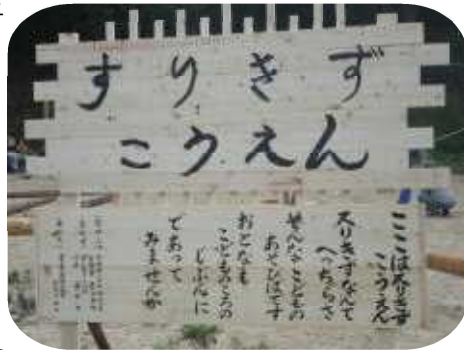 すりきず
こうえん
ここはスりきず
こうえん
スりきずなんて
へっちゃらさ
そんなこどもの
あそびばです
おとなも
こどもごころの
じぶんに
であって
みませんか